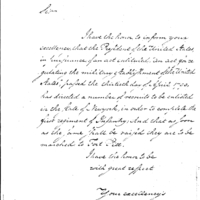 Sir
I have the honor to inform your
excellency that the President of the United States
in pursuance of an act entitled "An act for re-
gulating the military establishment of the United
States" passed the thirtieth day of April 1790.
has directed a number of recruits to be enlisted
in the State of New york, in order to complete the
first regiment of Infantry. And that as soon
as the same shall be raised they are to be
marched to Fort Pitt.
I have the honor to be
with great respect
Your excellency's